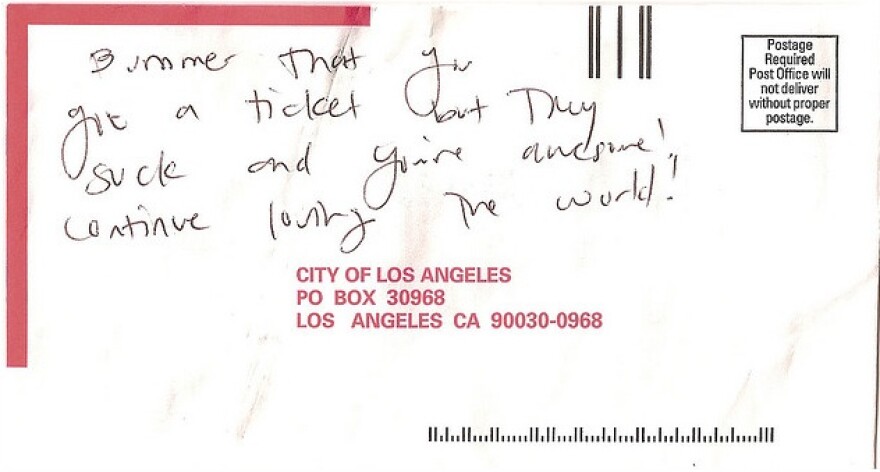 Bummer that you
got a ticket but They
suck and you're awesome!
continue loving The world!
Postage
Required
Post Office will
not deliver
without proper
postage.
CITY OF LOS ANGELES
PO BOX 30968
LOS ANGELES CA 90030-0968